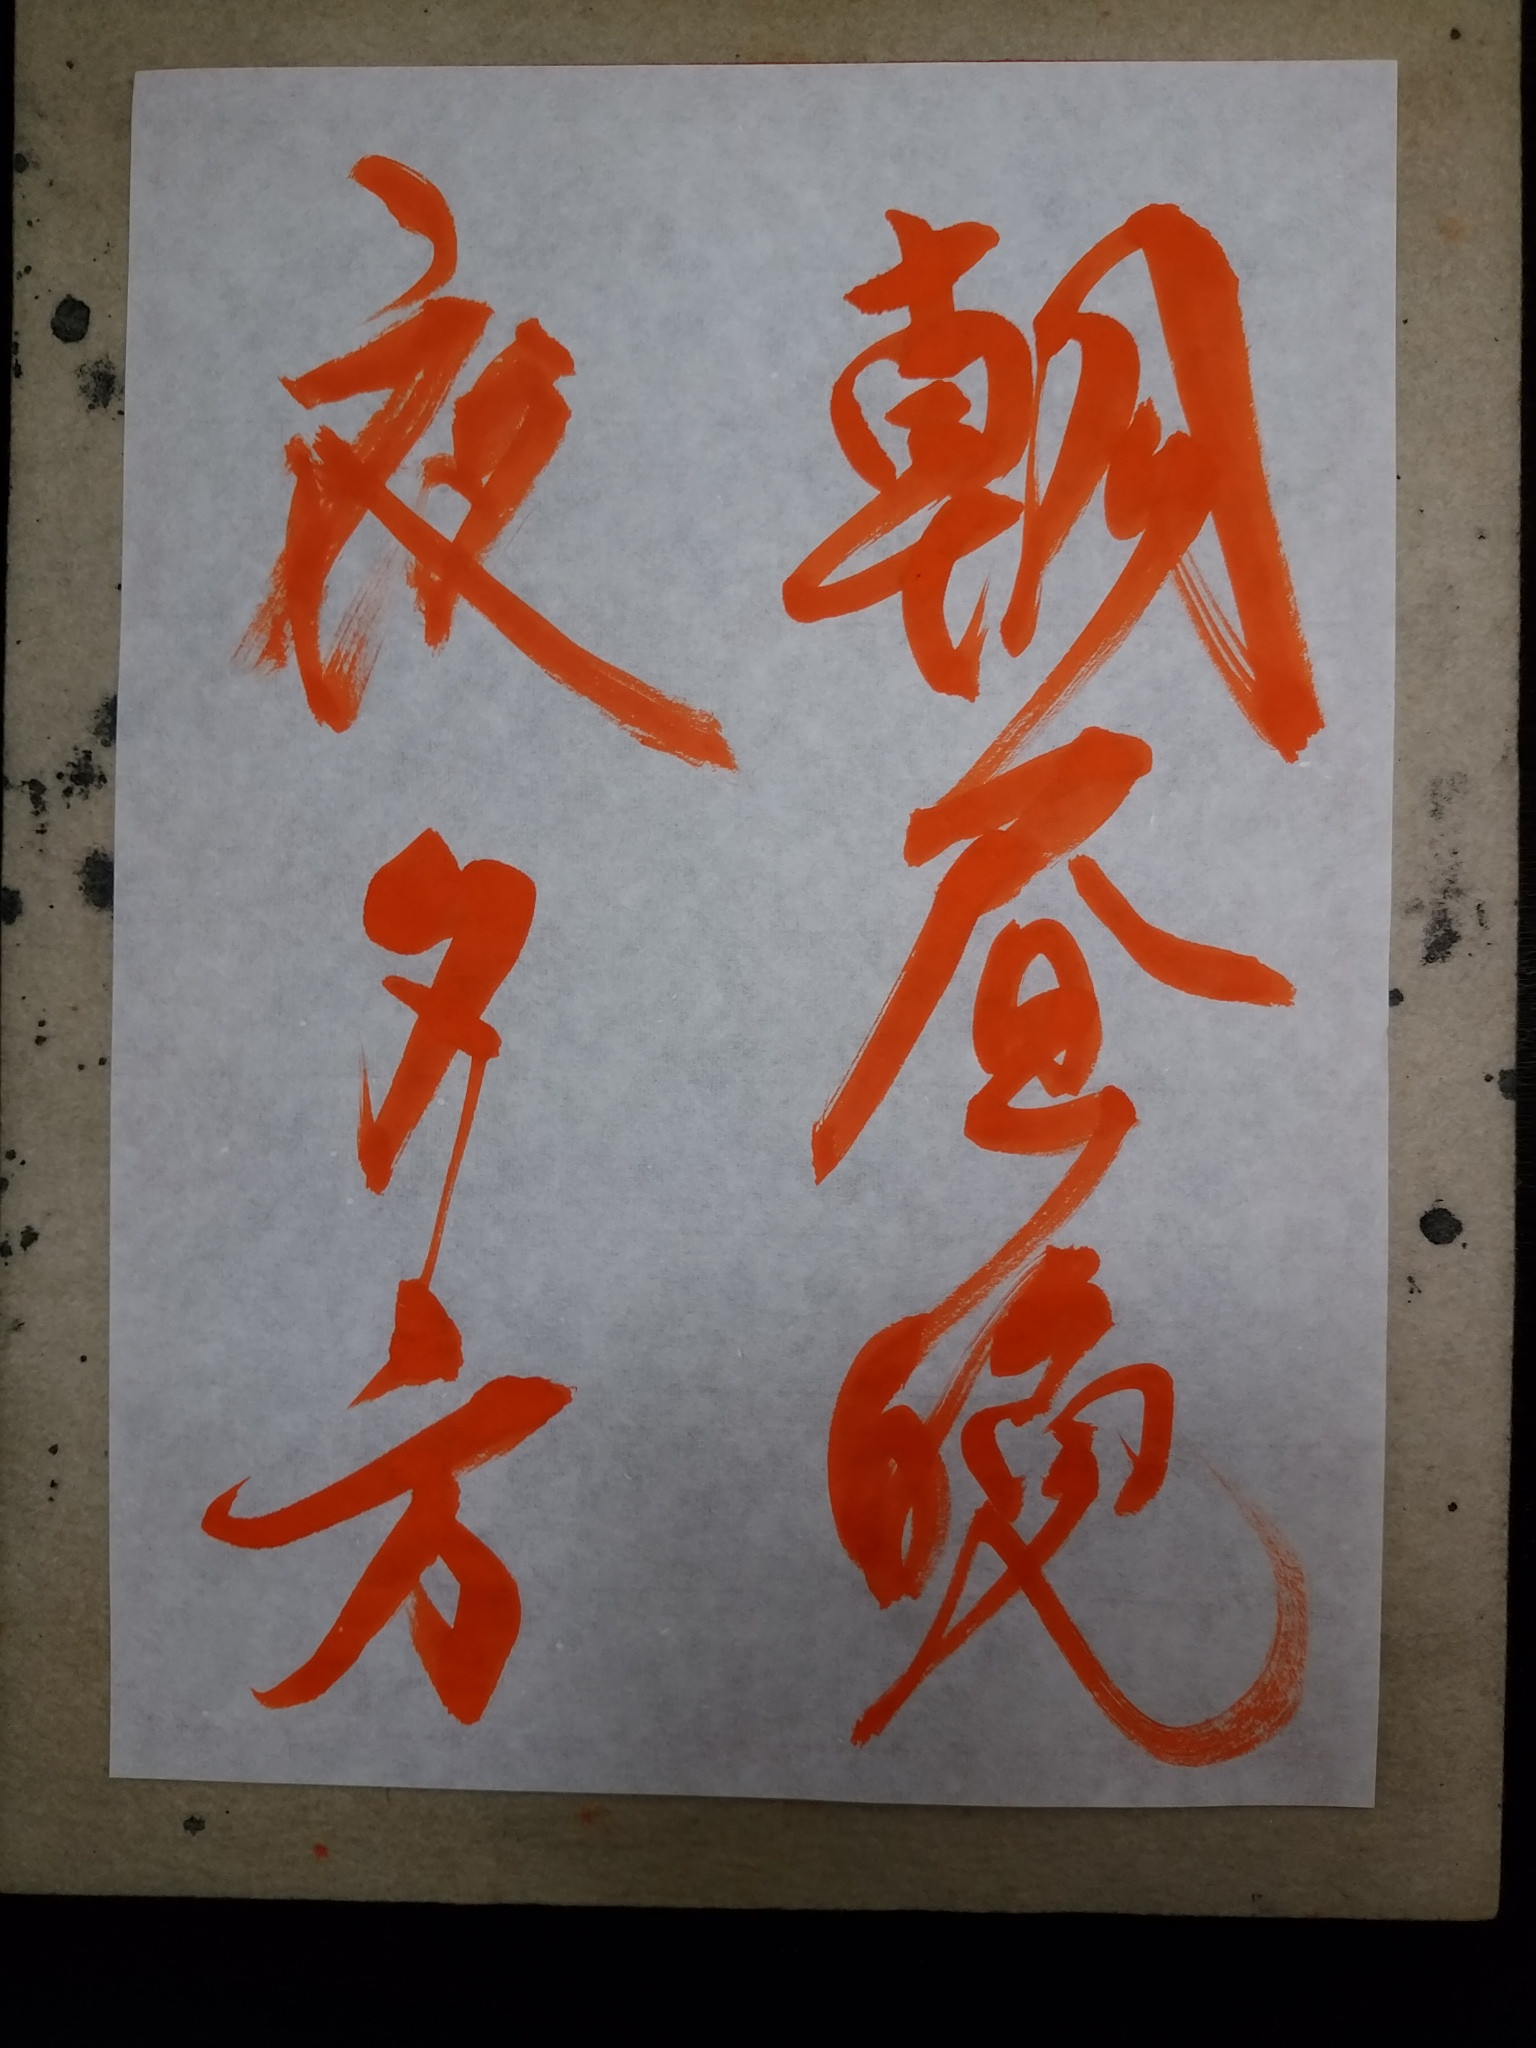 朝昼晩
夜夕方